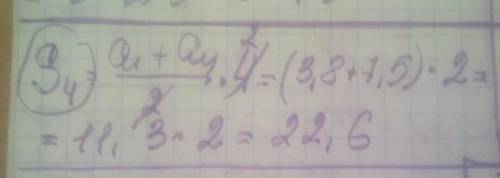 S₄ = (a₁ + a₄)/2 · 4 = (3,8+7,5) · 2 =
= 11,3 · 2 = 22,6